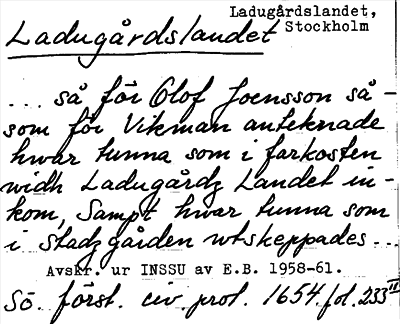 Ladugårdslandet,
Stockholm
Ladugårdslandet
... så för Olof Joensson så-
som för Vikman anteknade
hwar tunna som i farkosten
widh Ladugårdz Landet in-
kom, Sampt hwar tunna som
i Stadzgården utskeppades...
Avskr. ur INSSU av E.B. 1958-61.
Sö. först. civ. prot. 1654. fol. 233